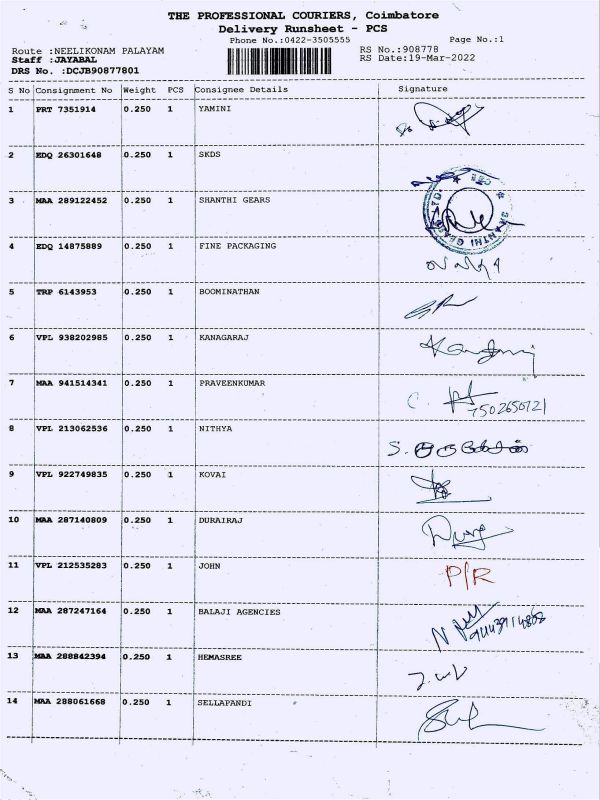 THE PROFESSIONAL COURIERS, Coimbatore
Delivery Runsheet - PCS
Phone No.:0422-3505555 Page No.:1
Route :NEELIKONAM PALAYAM RS No.:908778
Staff :JAYABAL RS Date:19-Mar-2022
DRS No. :DCJB90877801
S No Consignment No Weight PCS Consignee Details Signature
1 PRT 7351914 0.250 1 YAMINI
2 EDQ 26301648 0.250 1 SKDS
3 MAA 289122452 0.250 1 SHANTHI GEARS
4 EDQ 14875889 0.250 1 FINE PACKAGING
5 TRP 6143953 0.250 1 BOOMINATHAN
6 VPL 938202985 0.250 1 KANAGARAJ
7 MAA 941514341 0.250 1 PRAVEENKUMAR
7502650721
8 VPL 213062536 0.250 1 NITHYA
9 VPL 922749835 0.250 1 KOVAI
10 MAA 287140809 0.250 1 DURAIRAJ
11 VPL 212535283 0.250 1 JOHN P/R
12 MAA 287247164 0.250 1 BALAJI AGENCIES
13 MAA 288842394 0.250 1 HEMASREE
14 MAA 288061668 0.250 1 SELLAPANDI